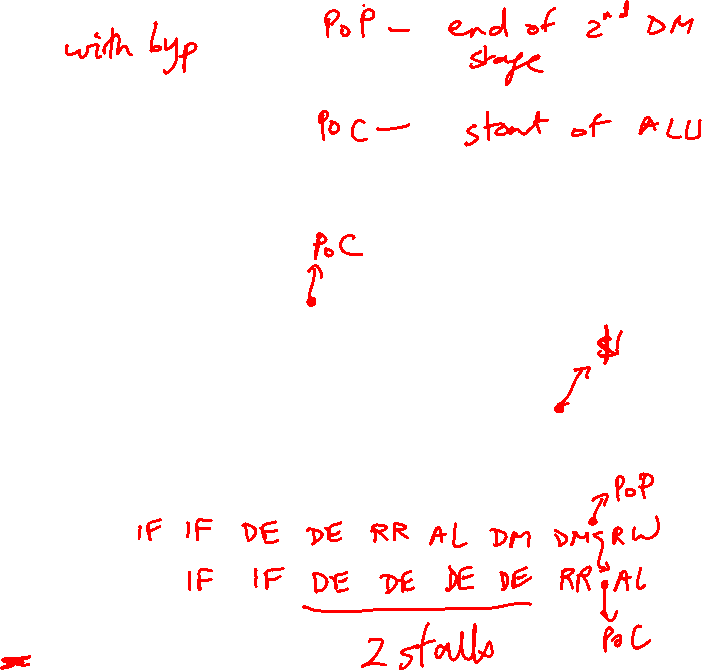 with byp
PoP - end of 2nd DM stage
PoC - start of ALU
PoC
PoP
IF IF DE DE RR AL DM DM RW
IF IF DE DE DE DE RR AL
2 stalls
PoC